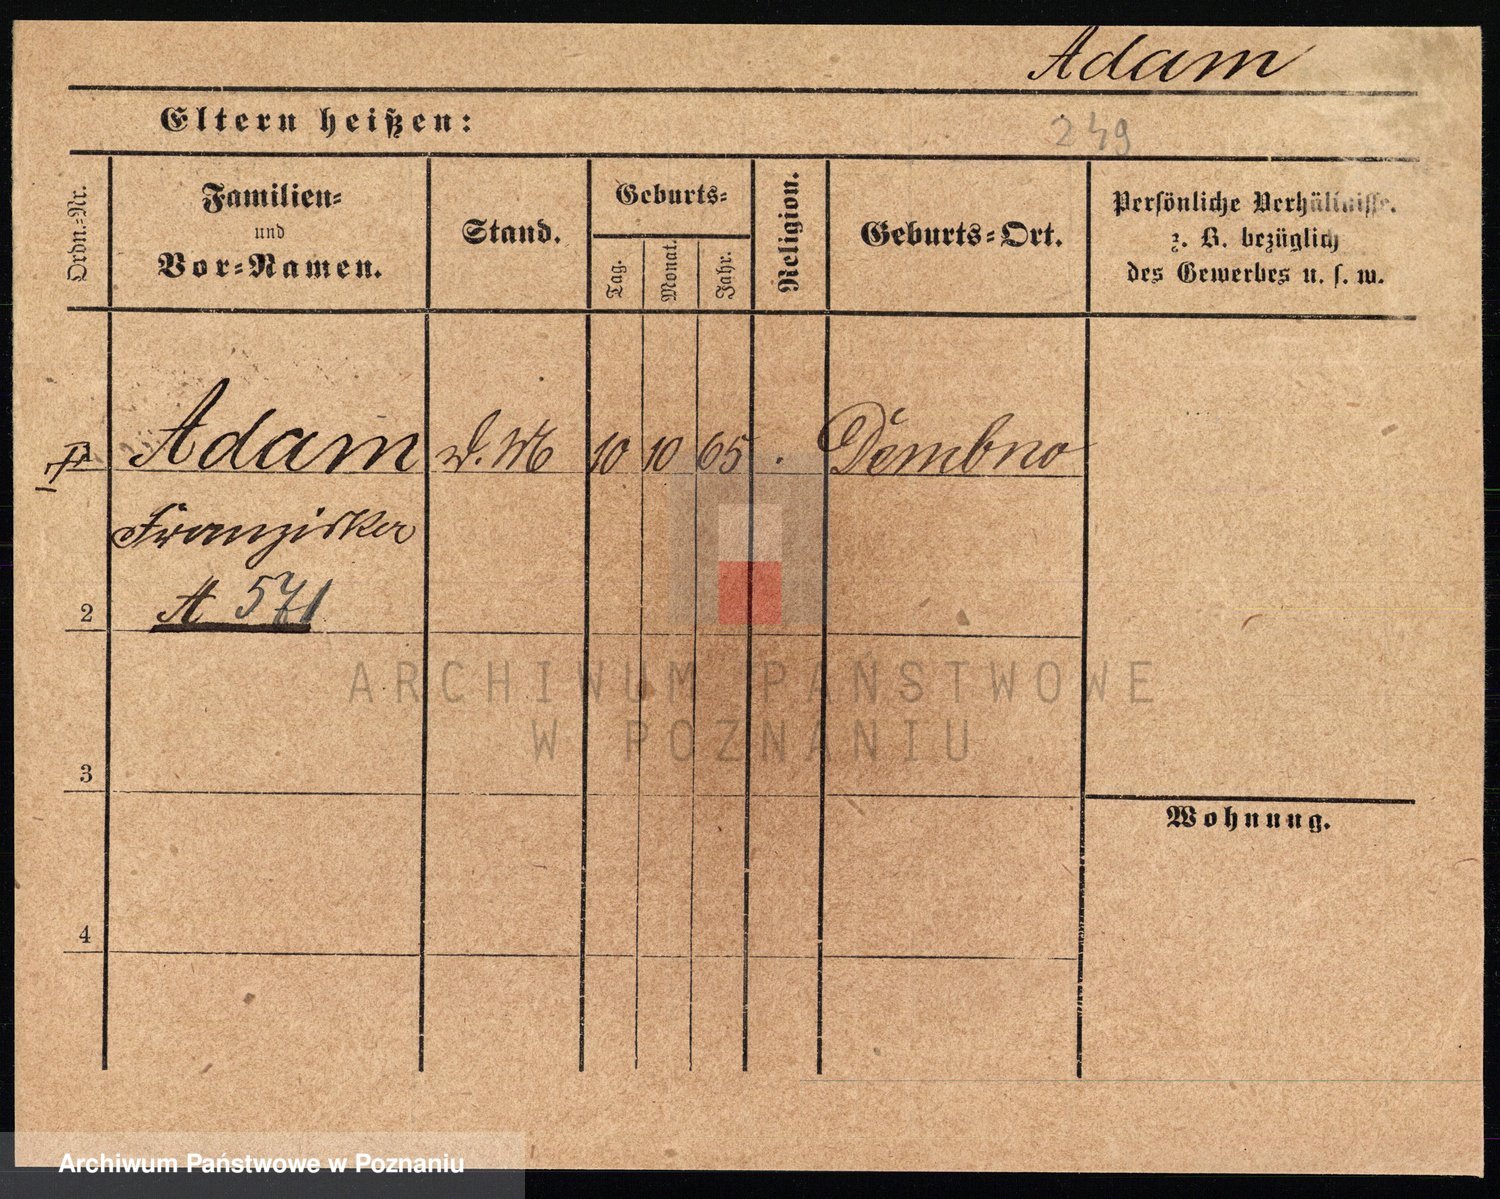 Adam
Eltern heißen:
249
Ordn.-Nr.
Familien-
und
Vor-Namen.
Stand.
Geburts-
Tag.
Monat.
Jahr.
Religion.
Geburts-Ort.
Persönliche Verhältnisse.
z. B. bezüglich
des Gewerbes u. s. w.
Adam D. M 10 10 65 . Dembno
Franziska
2 A 571
ARCHIWUM PAŃSTWOWE
W POZNANIU
3
Wohnung.
4
Archiwum Państwowe w Poznaniu